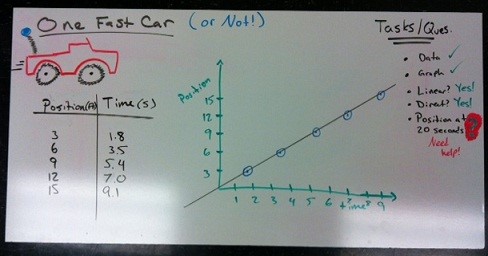 One Fast Car (or Not!)
Position(Ft) Time(s)
3 1.8
6 3.5
9 5.4
12 7.0
15 9.1
Position
15
12
9
6
3
1 2 3 4 5 6 time 9
Tasks/Ques.
• Data ✓
• Graph ✓
• Linear? Yes!
• Direct? Yes!
• Position at
20 seconds?
Need
help!